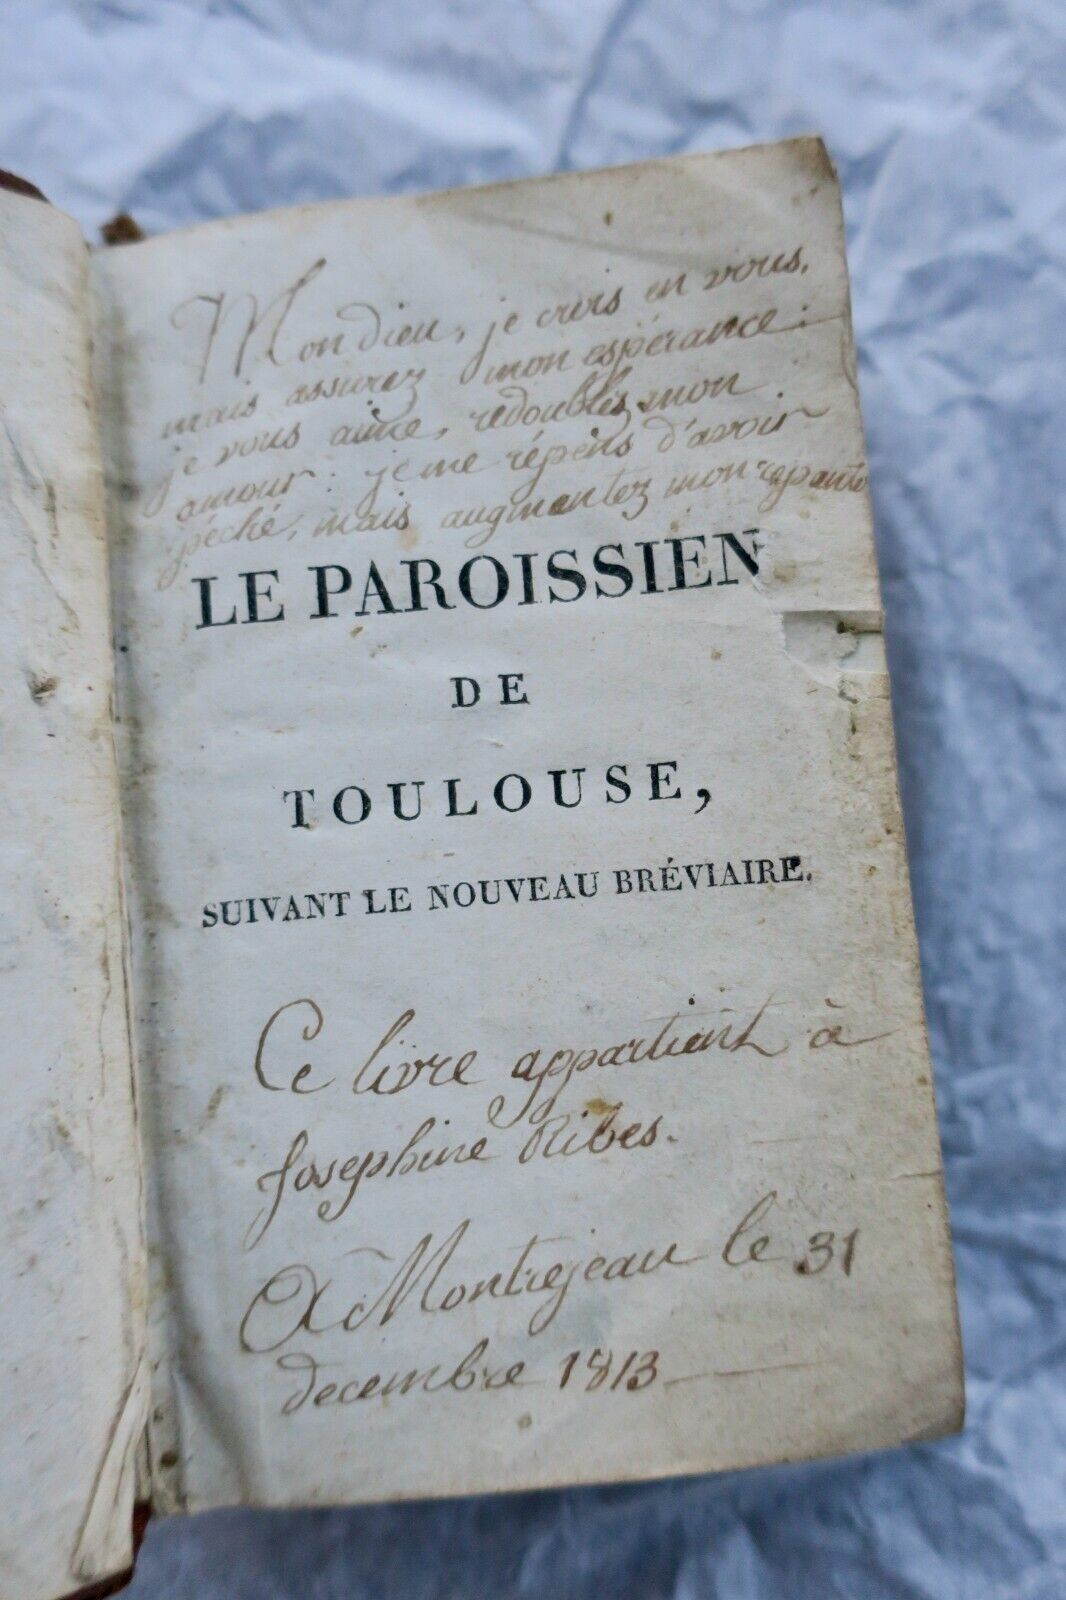 Mon dieu, je crois en vous,
mais assurez mon espérance:
je vous aime, redoubles mon
amour: je me répens d'avoir
péché, mais augmentez mon repante
LE PAROISSIEN
DE
TOULOUSE,
SUIVANT LE NOUVEAU BRÉVIAIRE.
Ce livre appartient à
Josephine Ribes.
A Montrejeau le 31
decembre 1813